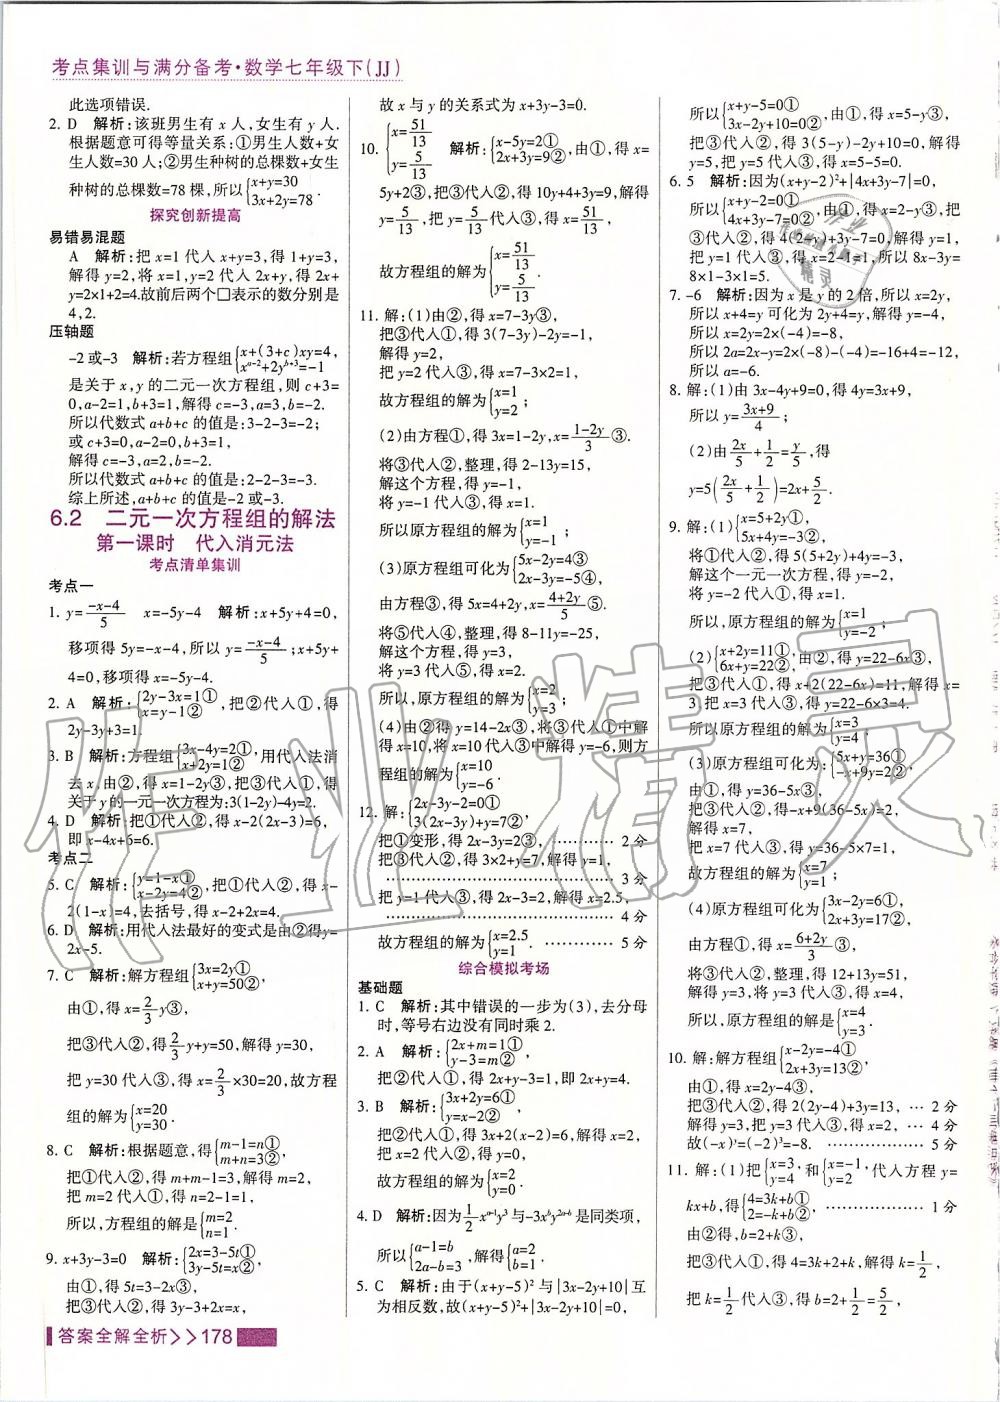 考点集训与满分备考·数学七年级下(JJ)
此选项错误.
2. D 解析:该班男生有 x 人,女生有 y 人.
根据题意可得等量关系:①男生人数+女
生人数=30 人;②男生种树的总棵数+女生
种树的总棵数=78 棵,所以{x+y=30
3x+2y=78.
探究创新提高
易错易混题
A 解析:把 x=1 代入 x+y=3,得 1+y=3,
解得 y=2,将 x=1,y=2 代入 2x+y,得 2x+
y=2×1+2=4.故前后两个□表示的数分别是
4,2.
压轴题
-2 或-3 解析:若方程组{x+(3+c)xy=4,
x^{a-2}+2y^{b+3}=-1
是关于 x,y 的二元一次方程组,则 c+3=
0,a-2=1,b+3=1,解得 c=-3,a=3,b=-2.
所以代数式 a+b+c 的值是:3-2-3=-2;
或 c+3=0,a-2=0,b+3=1,
解得 c=-3,a=2,b=-2.
所以代数式 a+b+c 的值是:2-2-3=-3.
综上所述,a+b+c 的值是-2 或-3.
6.2 二元一次方程组的解法
第一课时 代入消元法
考点清单集训
考点一
1. y=(-x-4)/5 x=-5y-4 解析:x+5y+4=0,
移项得 5y=-x-4,所以 y=(-x-4)/5;x+5y+
4=0,移项得 x=-5y-4.
2. A 解析:{2y-3x=1①
x=y-1②,把②代入①,得
2y-3y+3=1.
3. B 解析:方程组{3x-4y=2①
x+2y=1②,用代入法消
去 x,由②,得 x=1-2y③,把③代入①,得
关于 y 的一元一次方程为:3(1-2y)-4y=2.
4. D 解析:把①代入②,得 x-2(2x-3)=6,
即 x-4x+6=6.
考点二
5. C 解析:{y=1-x①
x-2y=4②,把①代入②,得 x-
2(1-x)=4,去括号,得 x-2+2x=4.
6. D 解析:用代入法最好的变式是由②得y=
2x-5.
7. C 解析:解方程组{3x=2y①
x+y=50②,
由①,得 x=2/3 y③,
把③代入②,得 2/3 y+y=50,解得 y=30,
把 y=30 代入③,得 x=2/3×30=20,故方程
组的解为{x=20
y=30.
8. C 解析:根据题意,得{m-1=n①
m+n=3②,
把①代入②,得 m+m-1=3,解得 m=2,
把 m=2 代入①,得 n=2-1=1,
所以,方程组的解是{m=2
n=1.
9. x+3y-3=0 解析:{2x=3-5t①
3y-5t=x②,
由①,得 5t=3-2x③,
把③代入②,得 3y-3+2x=x,
故 x 与 y 的关系式为 x+3y-3=0.
10. {x=51/13
y=5/13 解析:{x-5y=2①
2x+3y=9②,由①,得 x=
5y+2③,把③代入②,得 10y+4+3y=9,解得
y=5/13,把 y=5/13代入③,得 x=51/13,
故方程组的解为{x=51/13
y=5/13.
11. 解:(1)由②,得 x=7-3y③,
把③代入①,得 3(7-3y)-2y=-1,
解得 y=2,
把 y=2 代入③,得 x=7-3×2=1,
故方程组的解为{x=1
y=2;
(2)由方程①,得 3x=1-2y,x=(1-2y)/3 ③.
将③代入②,整理,得 2-13y=15,
解这个方程,得 y=-1,
将 y=-1 代入③,得 x=1.
所以原方程组的解为{x=1
y=-1;
(3)原方程组可化为{5x-2y=4③
2x-3y=-5④,
由方程③,得 5x=4+2y,x=(4+2y)/5⑤.
将⑤代入④,整理,得 8-11y=-25,
解这个方程,得 y=3,
将 y=3 代入⑤,得 x=2.
所以,原方程组的解为{x=2
y=3;
(4)由②得 y=14-2x③,将③代入①中解
得 x=10,将 x=10 代入③中解得 y=-6,则方
程组的解为{x=10
y=-6.
12. 解:{2x-3y-2=0①
3(2x-3y)+y=7②,
把①变形,得 2x-3y=2③, ………… 2 分
把③代入②,得 3×2+y=7,解得 y=1,
………… 3 分
把 y=1 代入③,得 2x-3=2,解得 x=2.5,
………… 4 分
故方程组的解为{x=2.5
y=1. ………… 5 分
综合模拟考场
基础题
1. C 解析:其中错误的一步为(3),去分母
时,等号右边没有同时乘 2.
2. A 解析:{2x+m=1①
y-3=m②,
把②代入①,得 2x+y-3=1,即 2x+y=4.
3. B 解析:{3x+2y=6①
y=x-2②,
把②代入①,得 3x+2(x-2)=6,解得 x=2,
把 x=2 代入②,得 y=0,
故方程组的解为{x=2
y=0.
4. D 解析:因为1/2 x^{a-1}y^3 与-3x^b y^{2a-b} 是同类项,
所以{a-1=b
2a-b=3,解得{a=2
b=1.
5. C 解析:由于(x+y-5)²与|3x-2y+10|互
为相反数,故(x+y-5)²+|3x-2y+10|=0,
所以{x+y-5=0①
3x-2y+10=0②,由①,得 x=5-y③,
把③代入②,得 3(5-y)-2y+10=0,解得
y=5,把 y=5 代入③,得 x=5-5=0.
6. 5 解析:因为(x+y-2)²+|4x+3y-7|=0,
所以{x+y-2=0①
4x+3y-7=0②,由①,得 x=2-y③,把
③代入②,得 4(2-y)+3y-7=0,解得 y=1,
把 y=1 代入③,得 x=2-1=1,所以 8x-3y=
8×1-3×1=5.
7. -6 解析:因为 x 是 y 的 2 倍,所以 x=2y,
所以 x+4=y 可化为 2y+4=y,解得 y=-4,
所以 x=2y=2×(-4)=-8,
所以 2a=2x-y=2×(-8)-(-4)=-16+4=-12,
所以 a=-6.
8. 解:(1)由 3x-4y+9=0,得 4y=3x+9,
所以 y=(3x+9)/4;
(2)由2x/5+1/2=y/5,得
y=5(2x/5+1/2)=2x+5/2.
9. 解:(1){x=5+2y①
5x+4y=-3②,
将①代入②,得 5(5+2y)+4y=-3,
解这个一元一次方程,得 y=-2,
将 y=-2 代入①,得 x=1.
所以,原方程组的解为{x=1
y=-2;
(2){x+2y=11①
6x+y=22②,由②,得 y=22-6x③,
把③代入①,得 x+2(22-6x)=11,解得 x=
3,把 x=3 代入③,得 y=22-6×3=4.
所以原方程组的解为{x=3
y=4;
(3)原方程组可化为:{5x+y=36①
-x+9y=2②,
由①,得 y=36-5x③,
把③代入②,得-x+9(36-5x)=2,
解得 x=7,
把 x=7 代入③,得 y=36-5×7=1,
故方程组的解为{x=7
y=1;
(4)原方程组可化为:{3x-2y=6①
2x+3y=17②,
由方程①,得 x=(6+2y)/3③,
将③代入②,整理,得 12+13y=51,
解得 y=3,将 y=3 代入③,得 x=4,
所以,原方程组的解是{x=4
y=3.
10. 解:解方程组{x-2y=-4①
2x+3y=13②,
由①,得 x=2y-4③,
把③代入②,得 2(2y-4)+3y=13, … 2 分
解得 y=3,把 y=3 代入③,得 x=2, … 4 分
故(-x)^y=(-2)^3=-8. ………… 5 分
11. 解:(1)把{x=3,
y=4 和{x=-1,
y=2 代入方程 y=
kx+b,得{4=3k+b①
2=-k+b②, ………… 1 分
由②得,b=2+k③,
把③代入①,得 4=3k+2+k,解得 k=1/2,
把 k=1/2代入③,得 b=2+1/2=5/2,
答案全解全析>>178
作业精灵